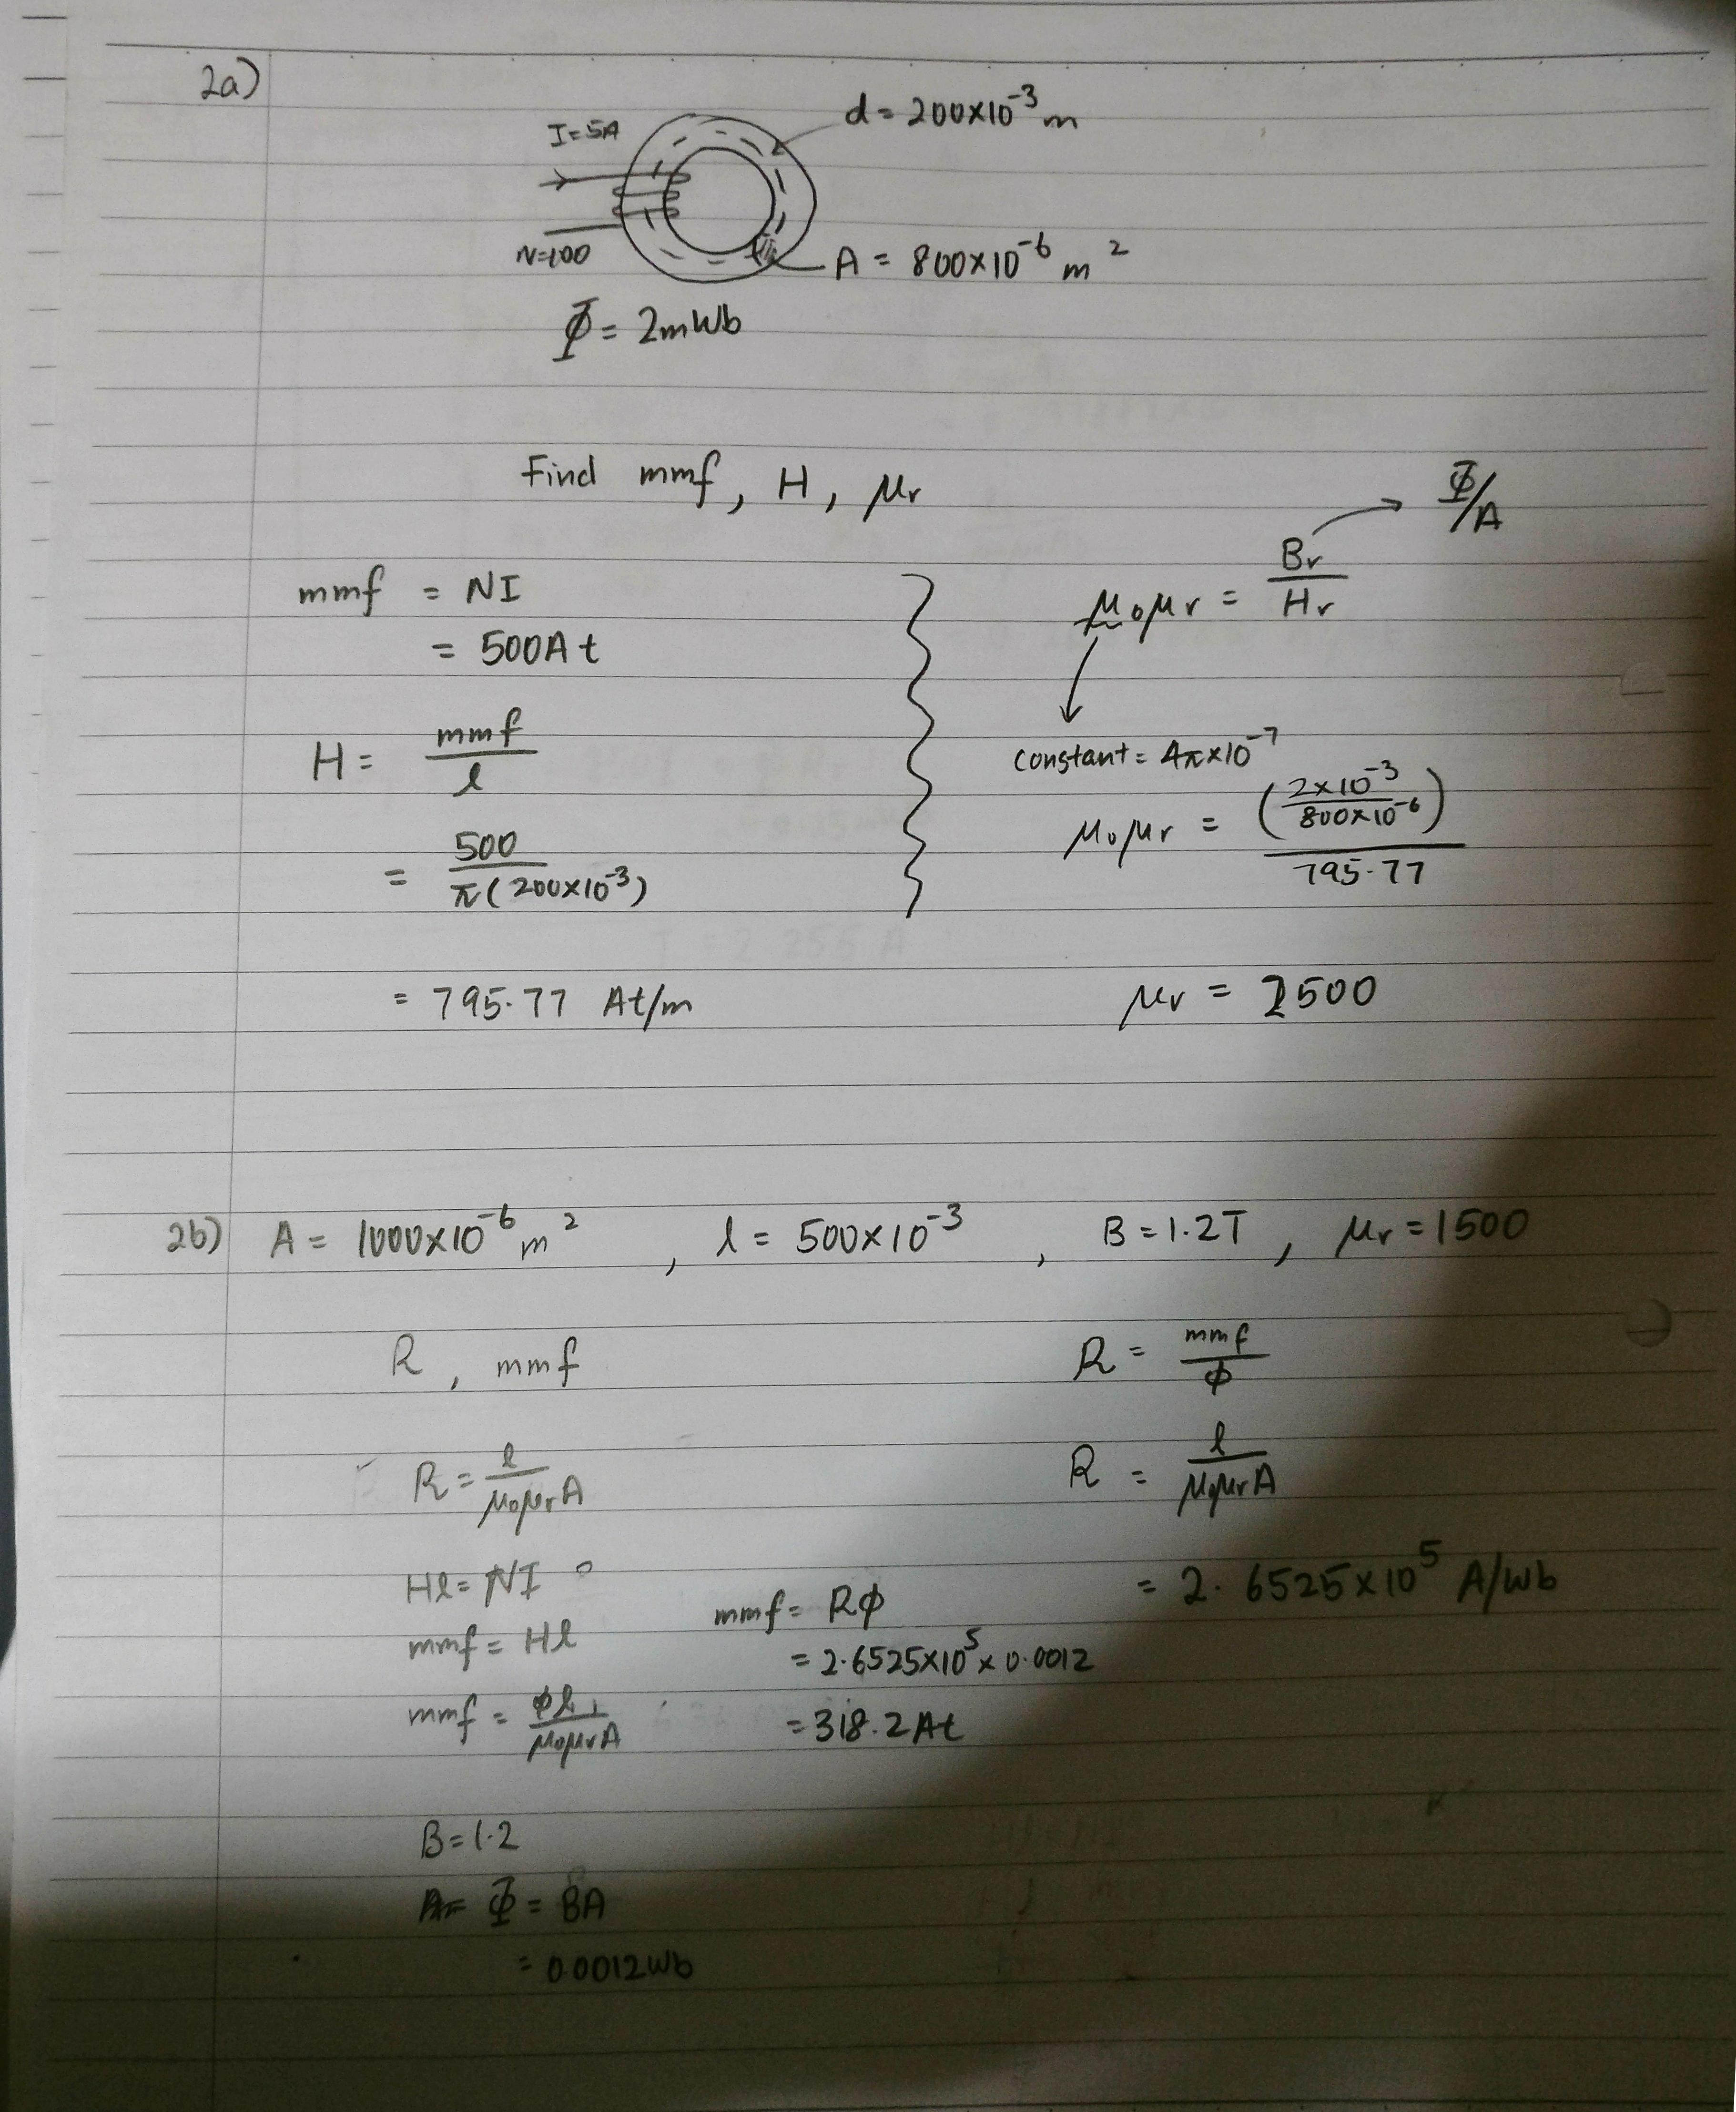 2a)
d = 200×10⁻³ m
I = 5A
N=100
A = 800×10⁻⁶ m²
Φ = 2mWb
Find mmf, H, μr
mmf = NI
= 500At
H = mmf/l
= 500/π(200×10⁻³)
= 795.77 At/m
μ₀μr = Br/Hr → Φ/A
constant = 4π×10⁻⁷
μ₀μr = (2×10⁻³/800×10⁻⁶)/795.77
μr = 2500
2b) A = 1000×10⁻⁶ m², l = 500×10⁻³, B = 1.2T, μr = 1500
R, mmf
R = l/μ₀μrA
Hl = NI
mmf = Hl
mmf = Φl/μ₀μrA
B = 1.2
Φ = BA
= 0.0012Wb
R = mmf/Φ
R = l/μ₀μrA
= 2.6525×10⁵ A/Wb
mmf = RΦ
= 2.6525×10⁵ × 0.0012
= 318.2At